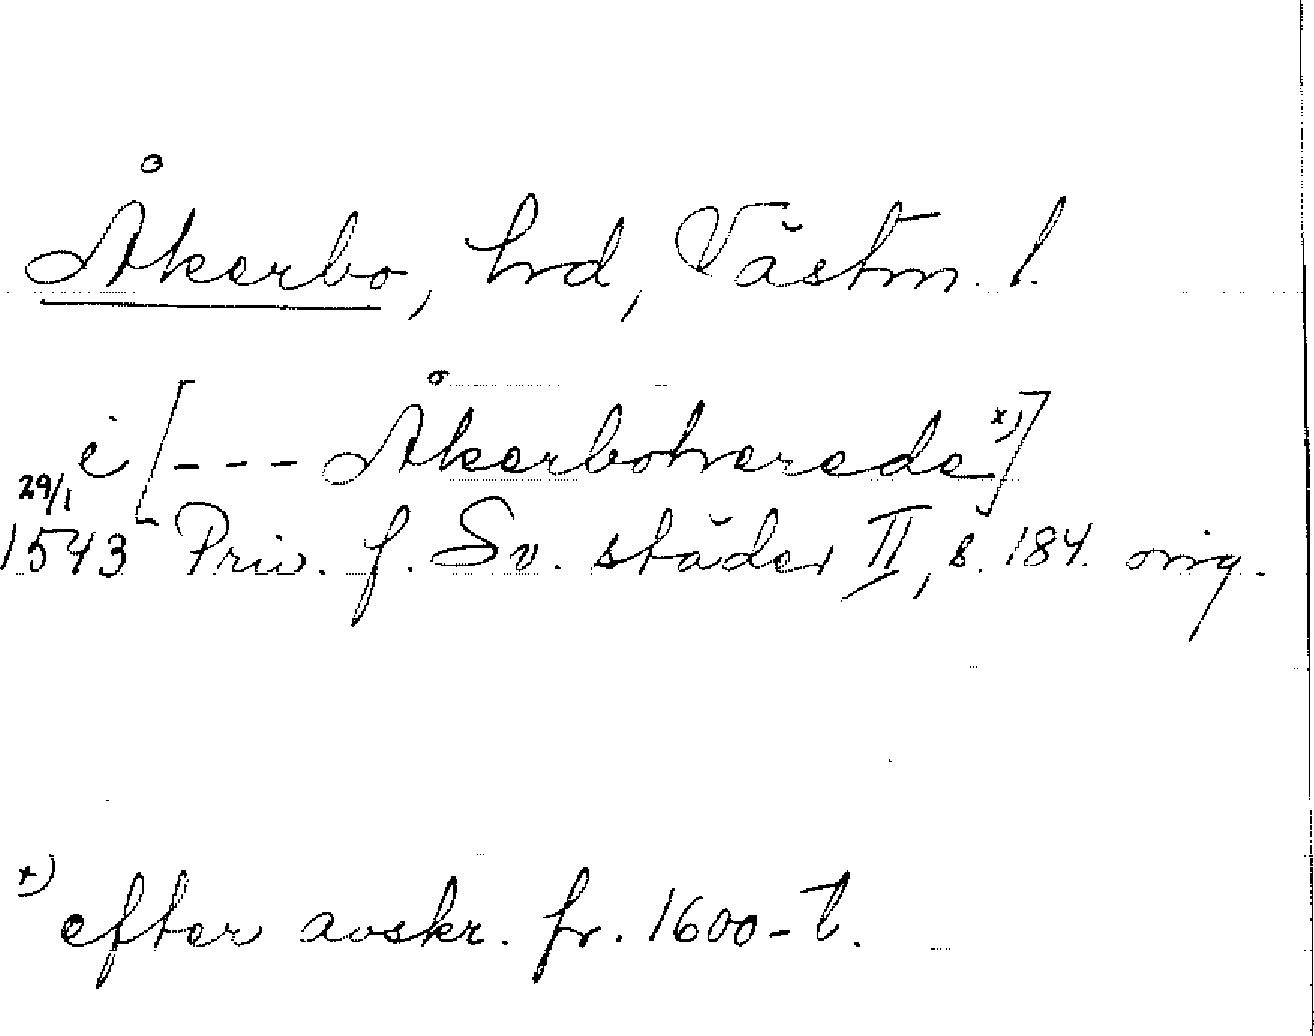 Åkerbo, hrd, Västm. l.
i [--- Åkerbohverede x)]
29/1
1543 Priv. f. Sv. städer II, s. 184. orig.
x) efter avskr. fr. 1600-t.